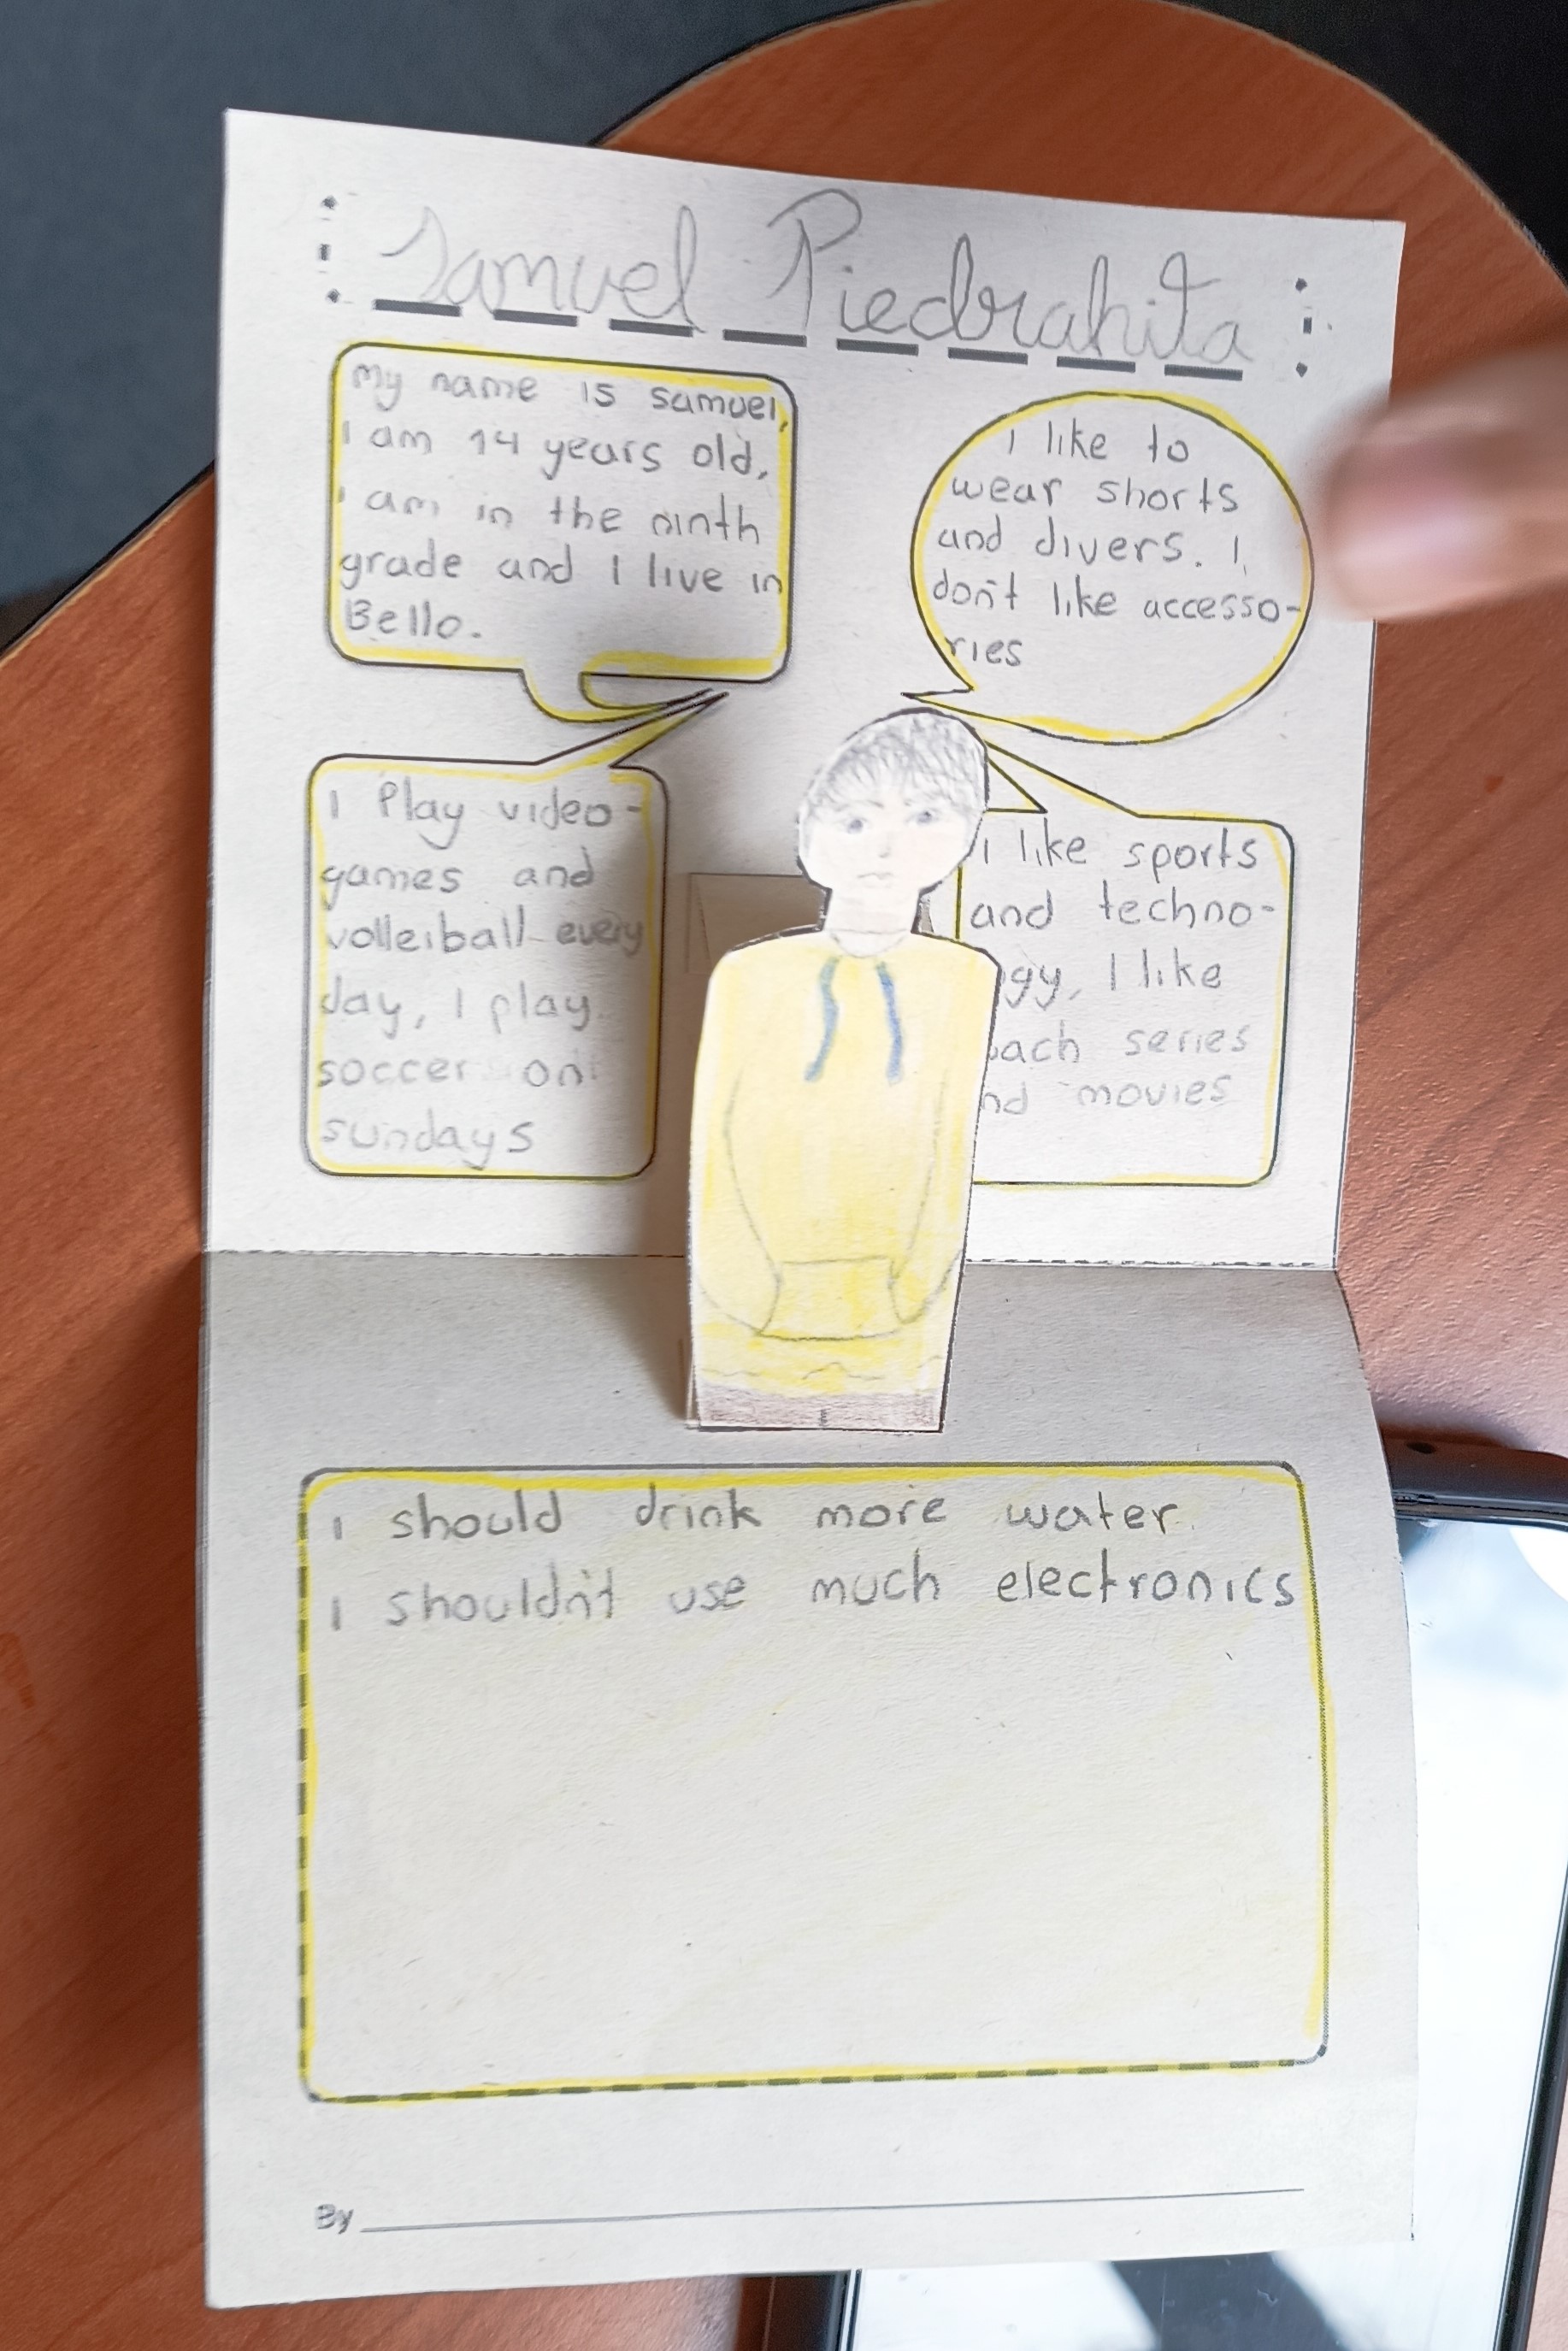 Samuel Piedrahita
My name is samuel,
I am 14 years old,
I am in the ninth
grade and I live in
Bello.
I like to
wear shorts
and divers. I
don't like accesso-
ries
I Play video-
games and
volleiball every
day, I play
soccer on
sundays
I like sports
and techno-
gy, I like
series
movies
I should drink more water
I shouldn't use much electronics
By